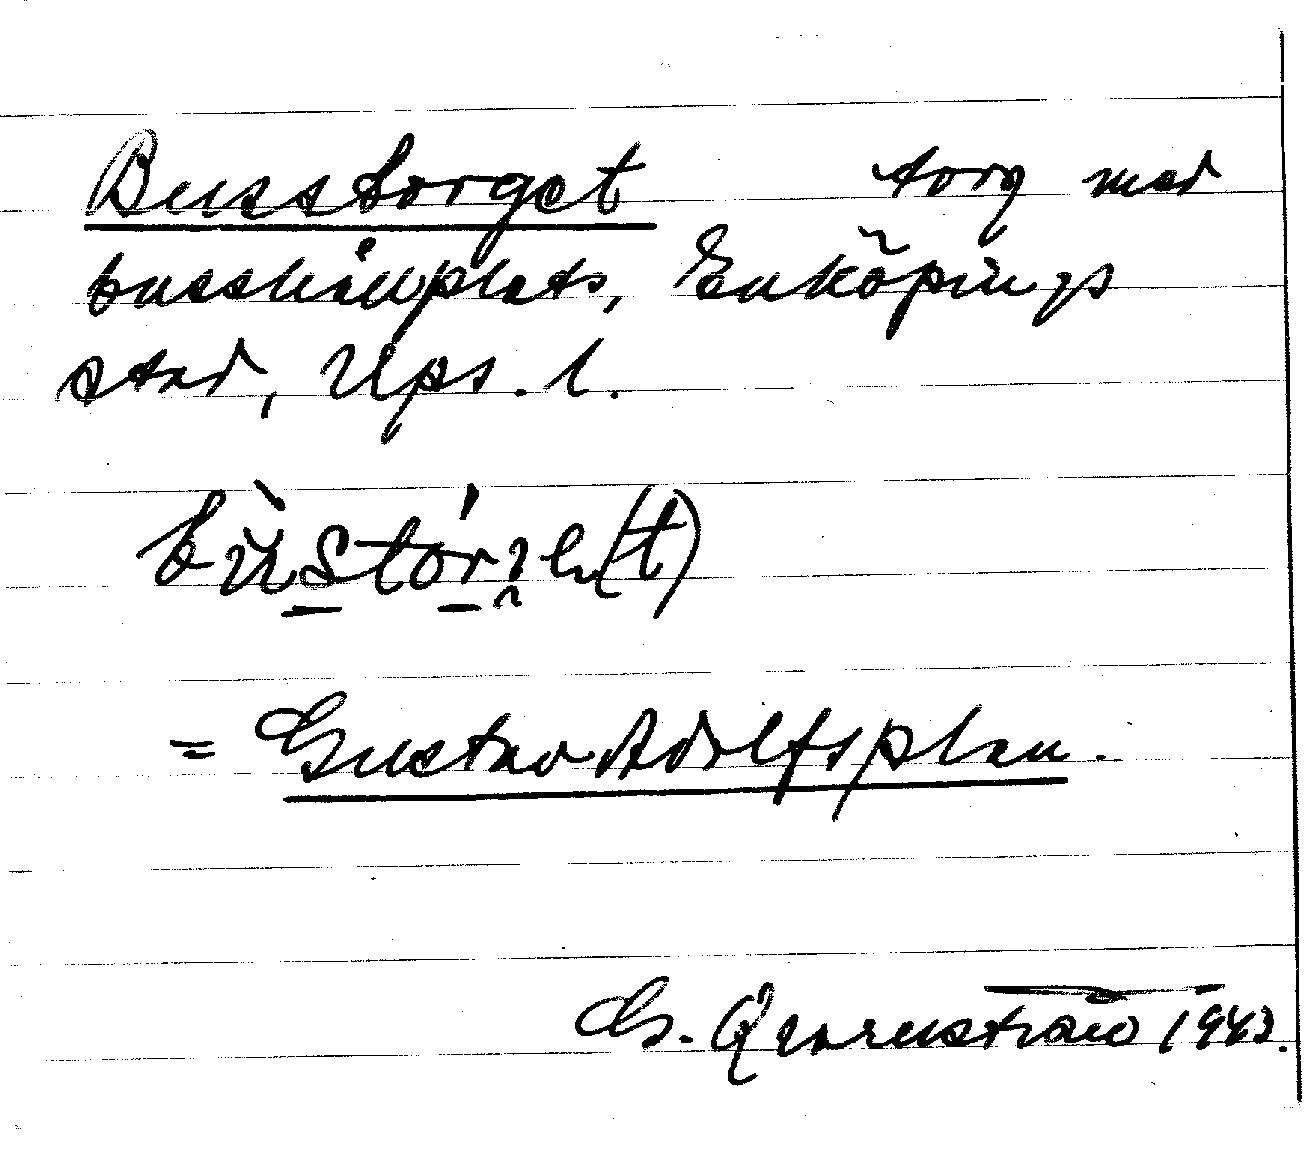 Busstorget torg med
busshållplats, Enköpings
stad, Ups. l.
bùstórɜe(t)
= Gustav Adolfsplan.
G. Qvarnström 1943.